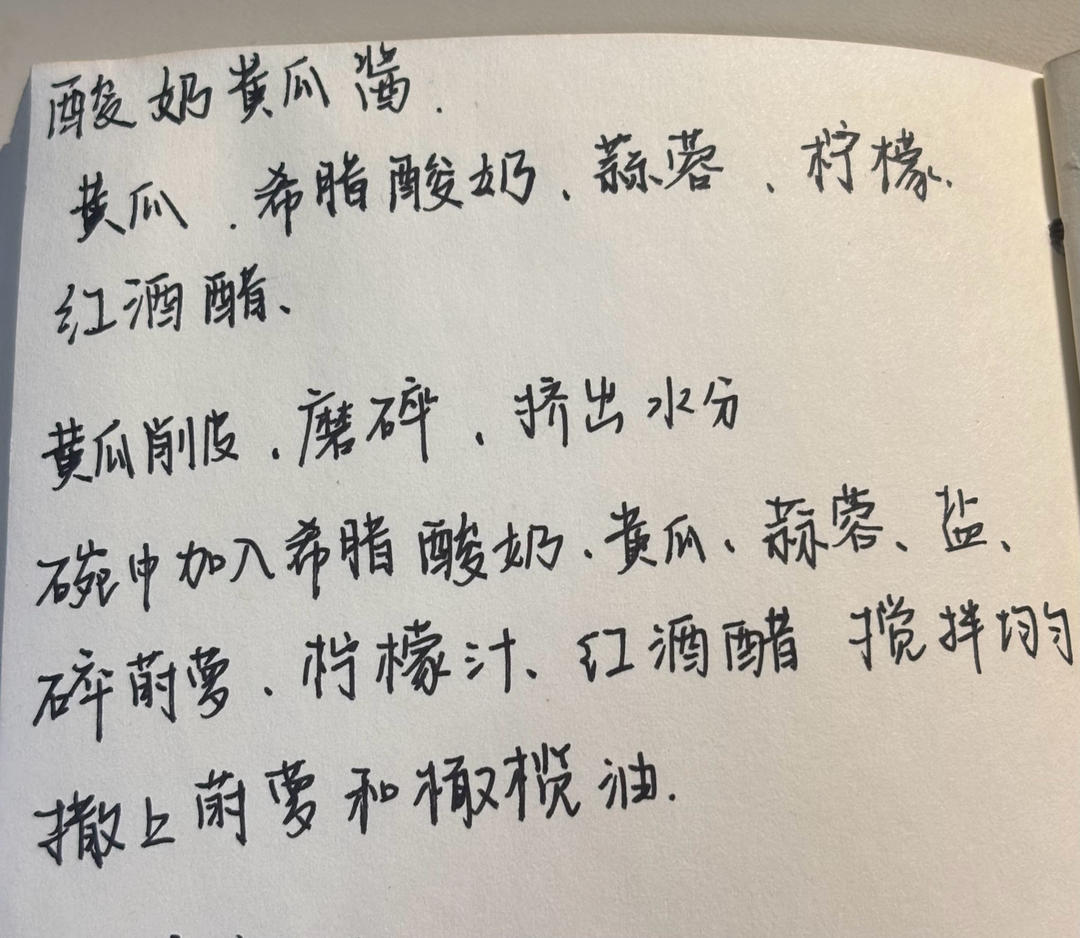 酸奶黄瓜酱.
黄瓜、希腊酸奶、蒜蓉、柠檬、
红酒醋、
黄瓜削皮、磨碎、挤出水分
碗中加入希腊酸奶、黄瓜、蒜蓉、盐、
碎莳萝、柠檬汁、红酒醋 搅拌均匀
撒上莳萝和橄榄油.